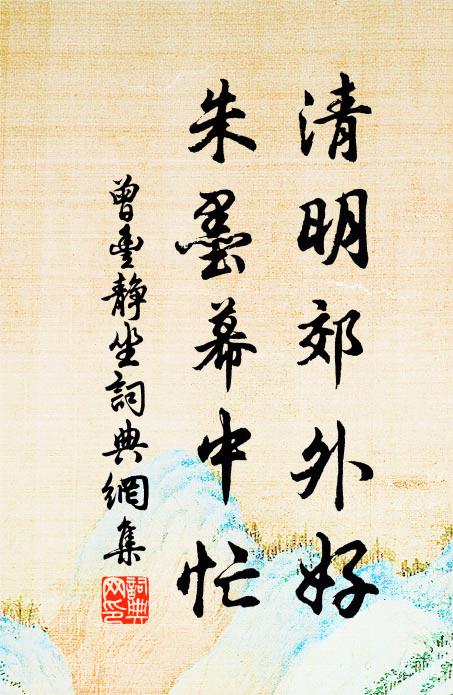 清明郊外好
朱墨幕中忙
曾豊静坐詞典網集
詞典网印